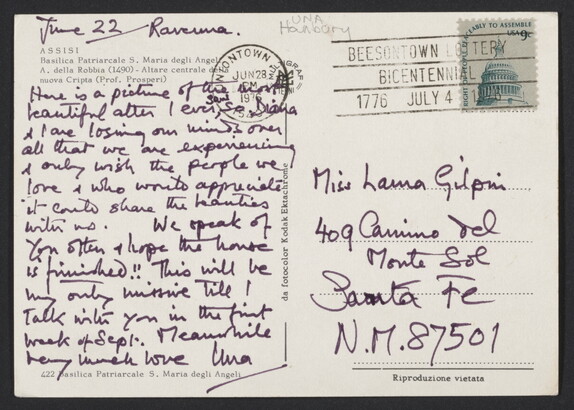 June 22 Ravenna.
UNA
Hanbury
ASSISI
Basilica Patriarcale S. Maria degli Angeli
A. della Robbia (1490) - Altare centrale
nuova Cripta (Prof. Prosperi)
Here is a picture of the most
beautiful alter I ever saw. Diana
& I are losing our minds over
all that we are experiencing
& only wish the people we
love & who would appreciate
it could share the beauties
with us. We speak of
you often & hope the house
is finished!! This will be
my only missive till I
talk with you in the first
week of Sept. Meanwhile
very much love Una
422 Basilica Patriarcale S. Maria degli Angeli
da fotocolor Kodak Ektachrome
UNIONTOWN
JUN 28
PM
1976
BEESONTOWN LOTTERY
BICENTENNIAL
1776 JULY 4
PEACEABLY TO ASSEMBLE
USA 9c
Miss Laura Gilpin
409 Camino del
Monte Sol
Santa Fe
N.M. 87501
Riproduzione vietata